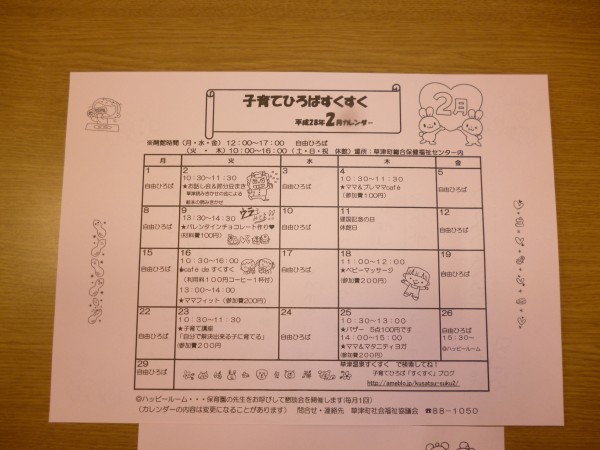 子育てひろばすくすく
平成28年2月カレンダー
2月
※開館時間 (月・水・金) 12:00～17:00 自由ひろば
(火・木) 10:00～16:00 (土・日・祝 休館) 場所:草津町総合保健福祉センター内
月 火 水 木 金
1
自由ひろば
2
10:30～11:30
★お話し会&節分豆まき
草津読みきかせの会による
絵本の読みきかせ
3
自由ひろば
4
10:30～11:30
★ママ&プレママcafé
(参加費100円)
5
自由ひろば
8
自由ひろば
9
13:30～14:30
★バレンタインチョコレート作り♥
(材料費100円)
10
自由ひろば
11
建国記念の日
休館日
12
自由ひろば
15
自由ひろば
16
10:30～16:00
café de すくすく
(利用料100円コーヒー1杯付)
13:00～14:00
★ママフィット (参加費200円)
17
自由ひろば
18
11:00～12:00
★ベビーマッサージ
(参加費200円)
19
自由ひろば
22
自由ひろば
23
10:30～11:30
★子育て講座
「自分で解決出来る子に育てる」
(参加費200円)
24
自由ひろば
25
10:30～13:00
★バザー 5点100円です
14:00～15:00
★ママ&マタニティヨガ
(参加費200円)
26
自由ひろば
15:30～
◎ハッピールーム
29
自由ひろば
草津温泉すくすく で検索してね!
子育てひろば「すくすく」ブログ
http://ameblo.jp/kusatsu-suku2/
◎ハッピールーム・・・保育園の先生をお呼びして懇談会を開催します(毎月1回)
(カレンダーの内容は変更になることがあります) 問合せ・連絡先 草津町社会福祉協議会 ☎88-1050